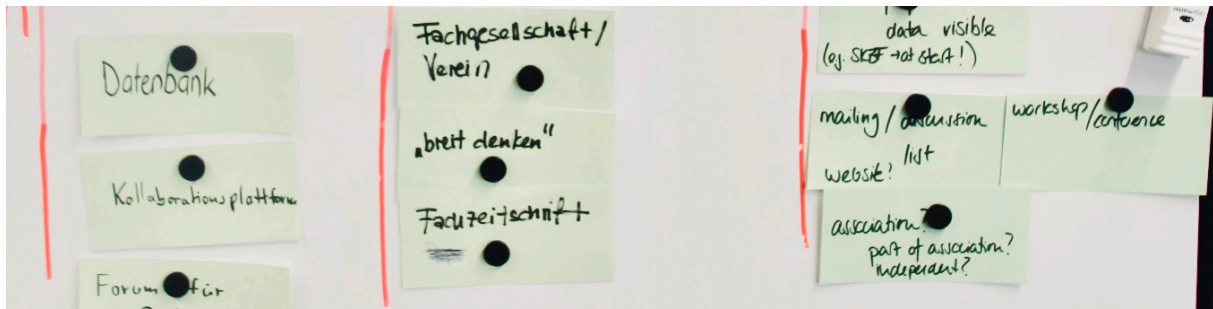 Datenbank
Kollaborationsplattform
Forum für
Fachgesellschaft/
Verein
„breit denken“
Fachzeitschrift
data visible
(e.g. → at start!)
mailing / discussion
list
website?
workshop/conference
association?
part of association?
independent?